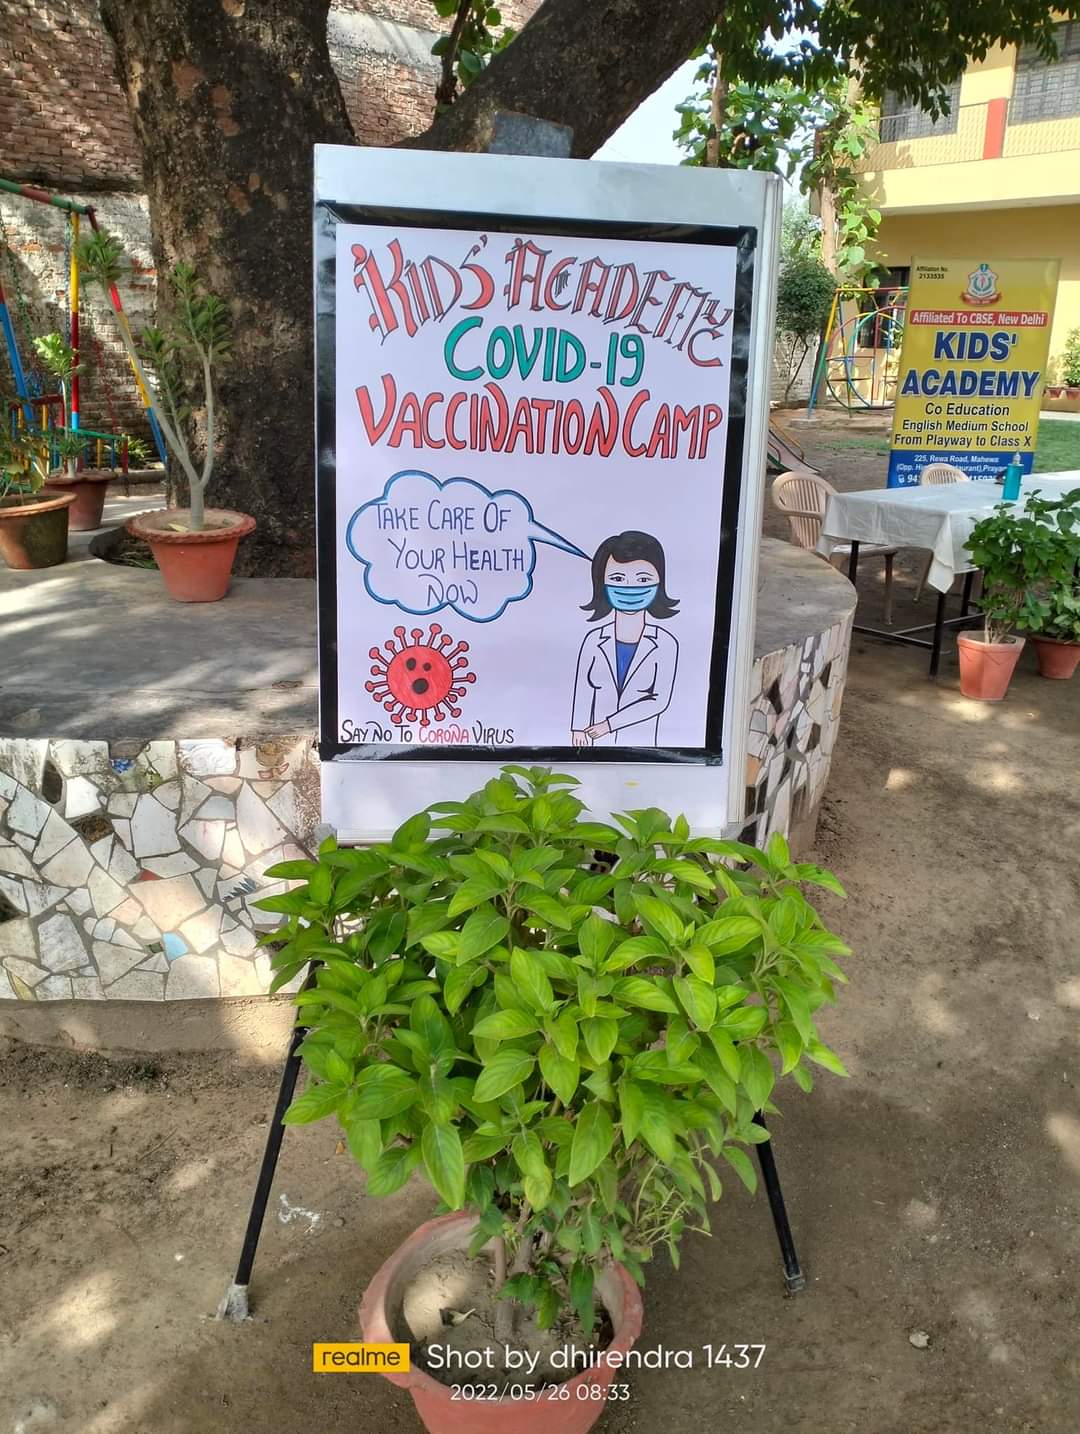 'KIDS' ACADEMY
COVID-19
VACCINATION CAMP
TAKE CARE OF
YOUR HEALTH
NOW
SAY NO TO CORONA VIRUS
Affiliation No.
2133535
Affiliated To CBSE, New Delhi
KIDS'
ACADEMY
Co Education
English Medium School
From Playway to Class X
225, Rewa Road, Mahewa
(Opp.
realme Shot by dhirendra 1437
2022/05/26 08:33